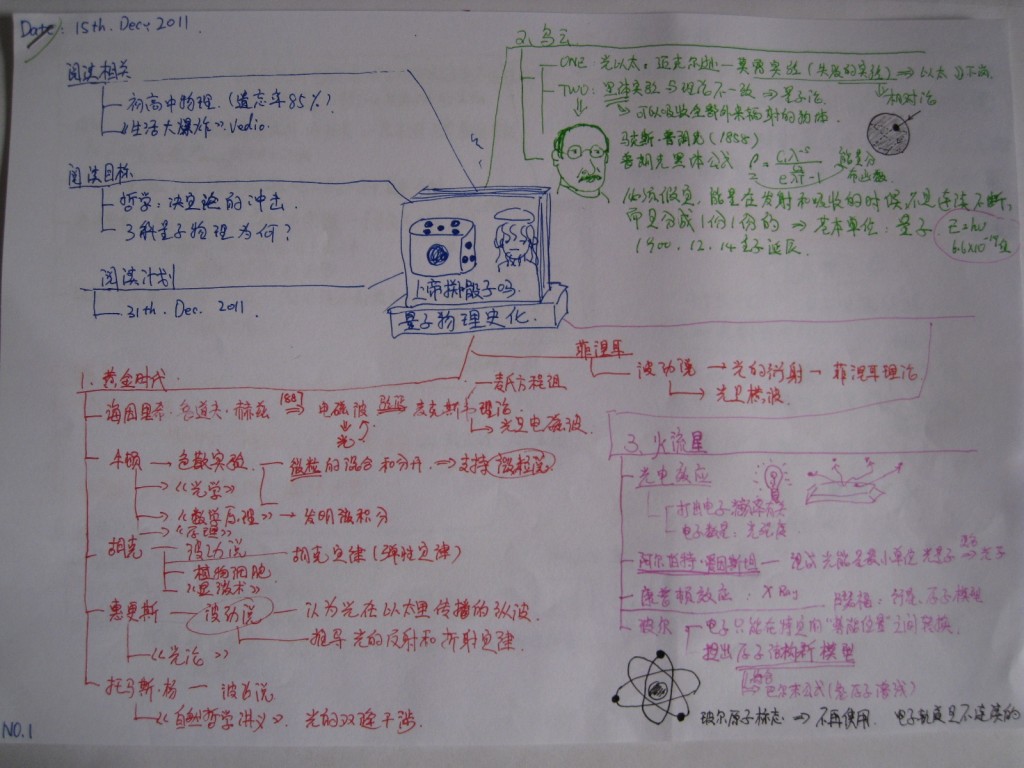 Date: 15th. Dec, 2011.
阅读相关
初高中物理.(遗忘率85%)
《生活大爆炸》. Vedio.
阅读目标
哲学: 决定论的冲击.
了解量子物理为何?
阅读计划
31th. Dec. 2011.
上帝掷骰子吗.
量子物理史化.
2. 乌云
ONE: 光以太: 迈克尔逊—莫雷实验(失败的实验) ⇒ 以太
相对论
TWO: 黑体实验与理论不一致 ⇒ 量子论.
可以吸收全部外来辐射的物体.
马克斯·普朗克(1858)
普朗克黑体公式
能量分布函数.
必须假定, 能量在发射和吸收的时候,不是连续不断,
而是分成1份1份的 ⇒ 基本单位: 量子 E=hν
1900. 12. 14 量子诞辰.
1. 黄金时代.
海因里希·鲁道夫·赫兹 ⇒ 电磁波 麦克斯韦理论
麦氏方程组
光
光是电磁波.
牛顿 → 色散实验. 微粒的混合和分开. ⇒ 支持微粒说
→ 《光学》
→ 《数学原理》 → 发明微积分
《原理》
胡克 波动说 胡克定律(弹性定律)
植物细胞
《显微术》
惠更斯 — 波动说 — 认为光在以太里传播的纵波.
推导光的反射和折射定律
《光论》
托马斯·杨 — 波动说
《自然哲学讲义》. 光的双缝干涉.
菲涅耳
波动说 → 光的衍射 → 菲涅耳理论
→ 光是横波.
3. 火流星
光电效应
打出电子:
电子数量: 光强度
阿尔伯特·爱因斯坦 — 光量子 → 光子
康普顿效应. X Ray
卢瑟福: 行星. 原子模型
波尔 电子只能在特定的"势能位置"之间转换.
提出原子结构新模型
巴尔末公式(氢原子谱线)
玻尔原子标志 ⇒ 不再使用. 电子轨道是不连续的
NO.1